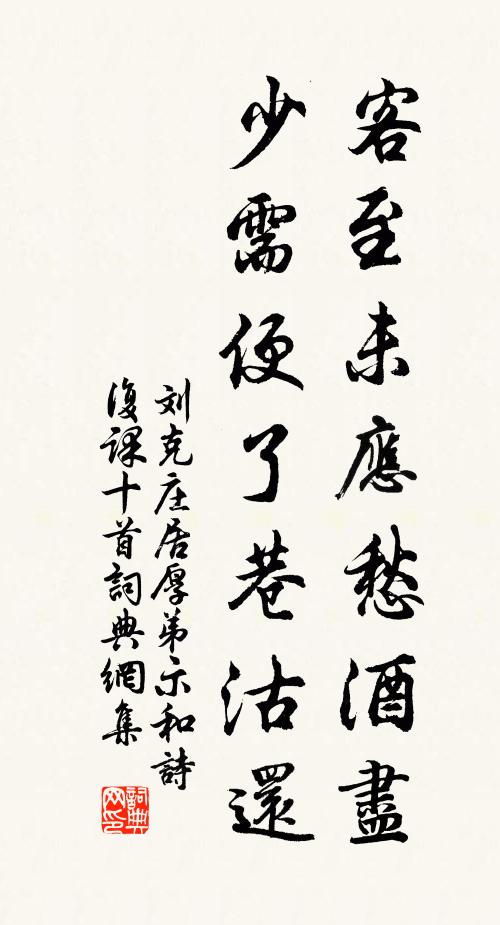 客至未應愁酒盡
少需便了巷沽還
刘克庄居厚弟示和詩
復課十首詞典網集
詞典
网印